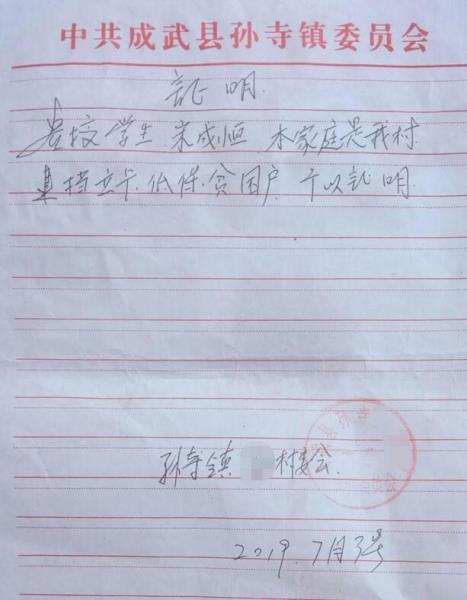 中共成武县孙寺镇委员会
证明
贵校学生宋成恒 本家庭是我村
建档立卡.低保.贫困户 予以证明
孙寺镇 村委会
2019.7月3号